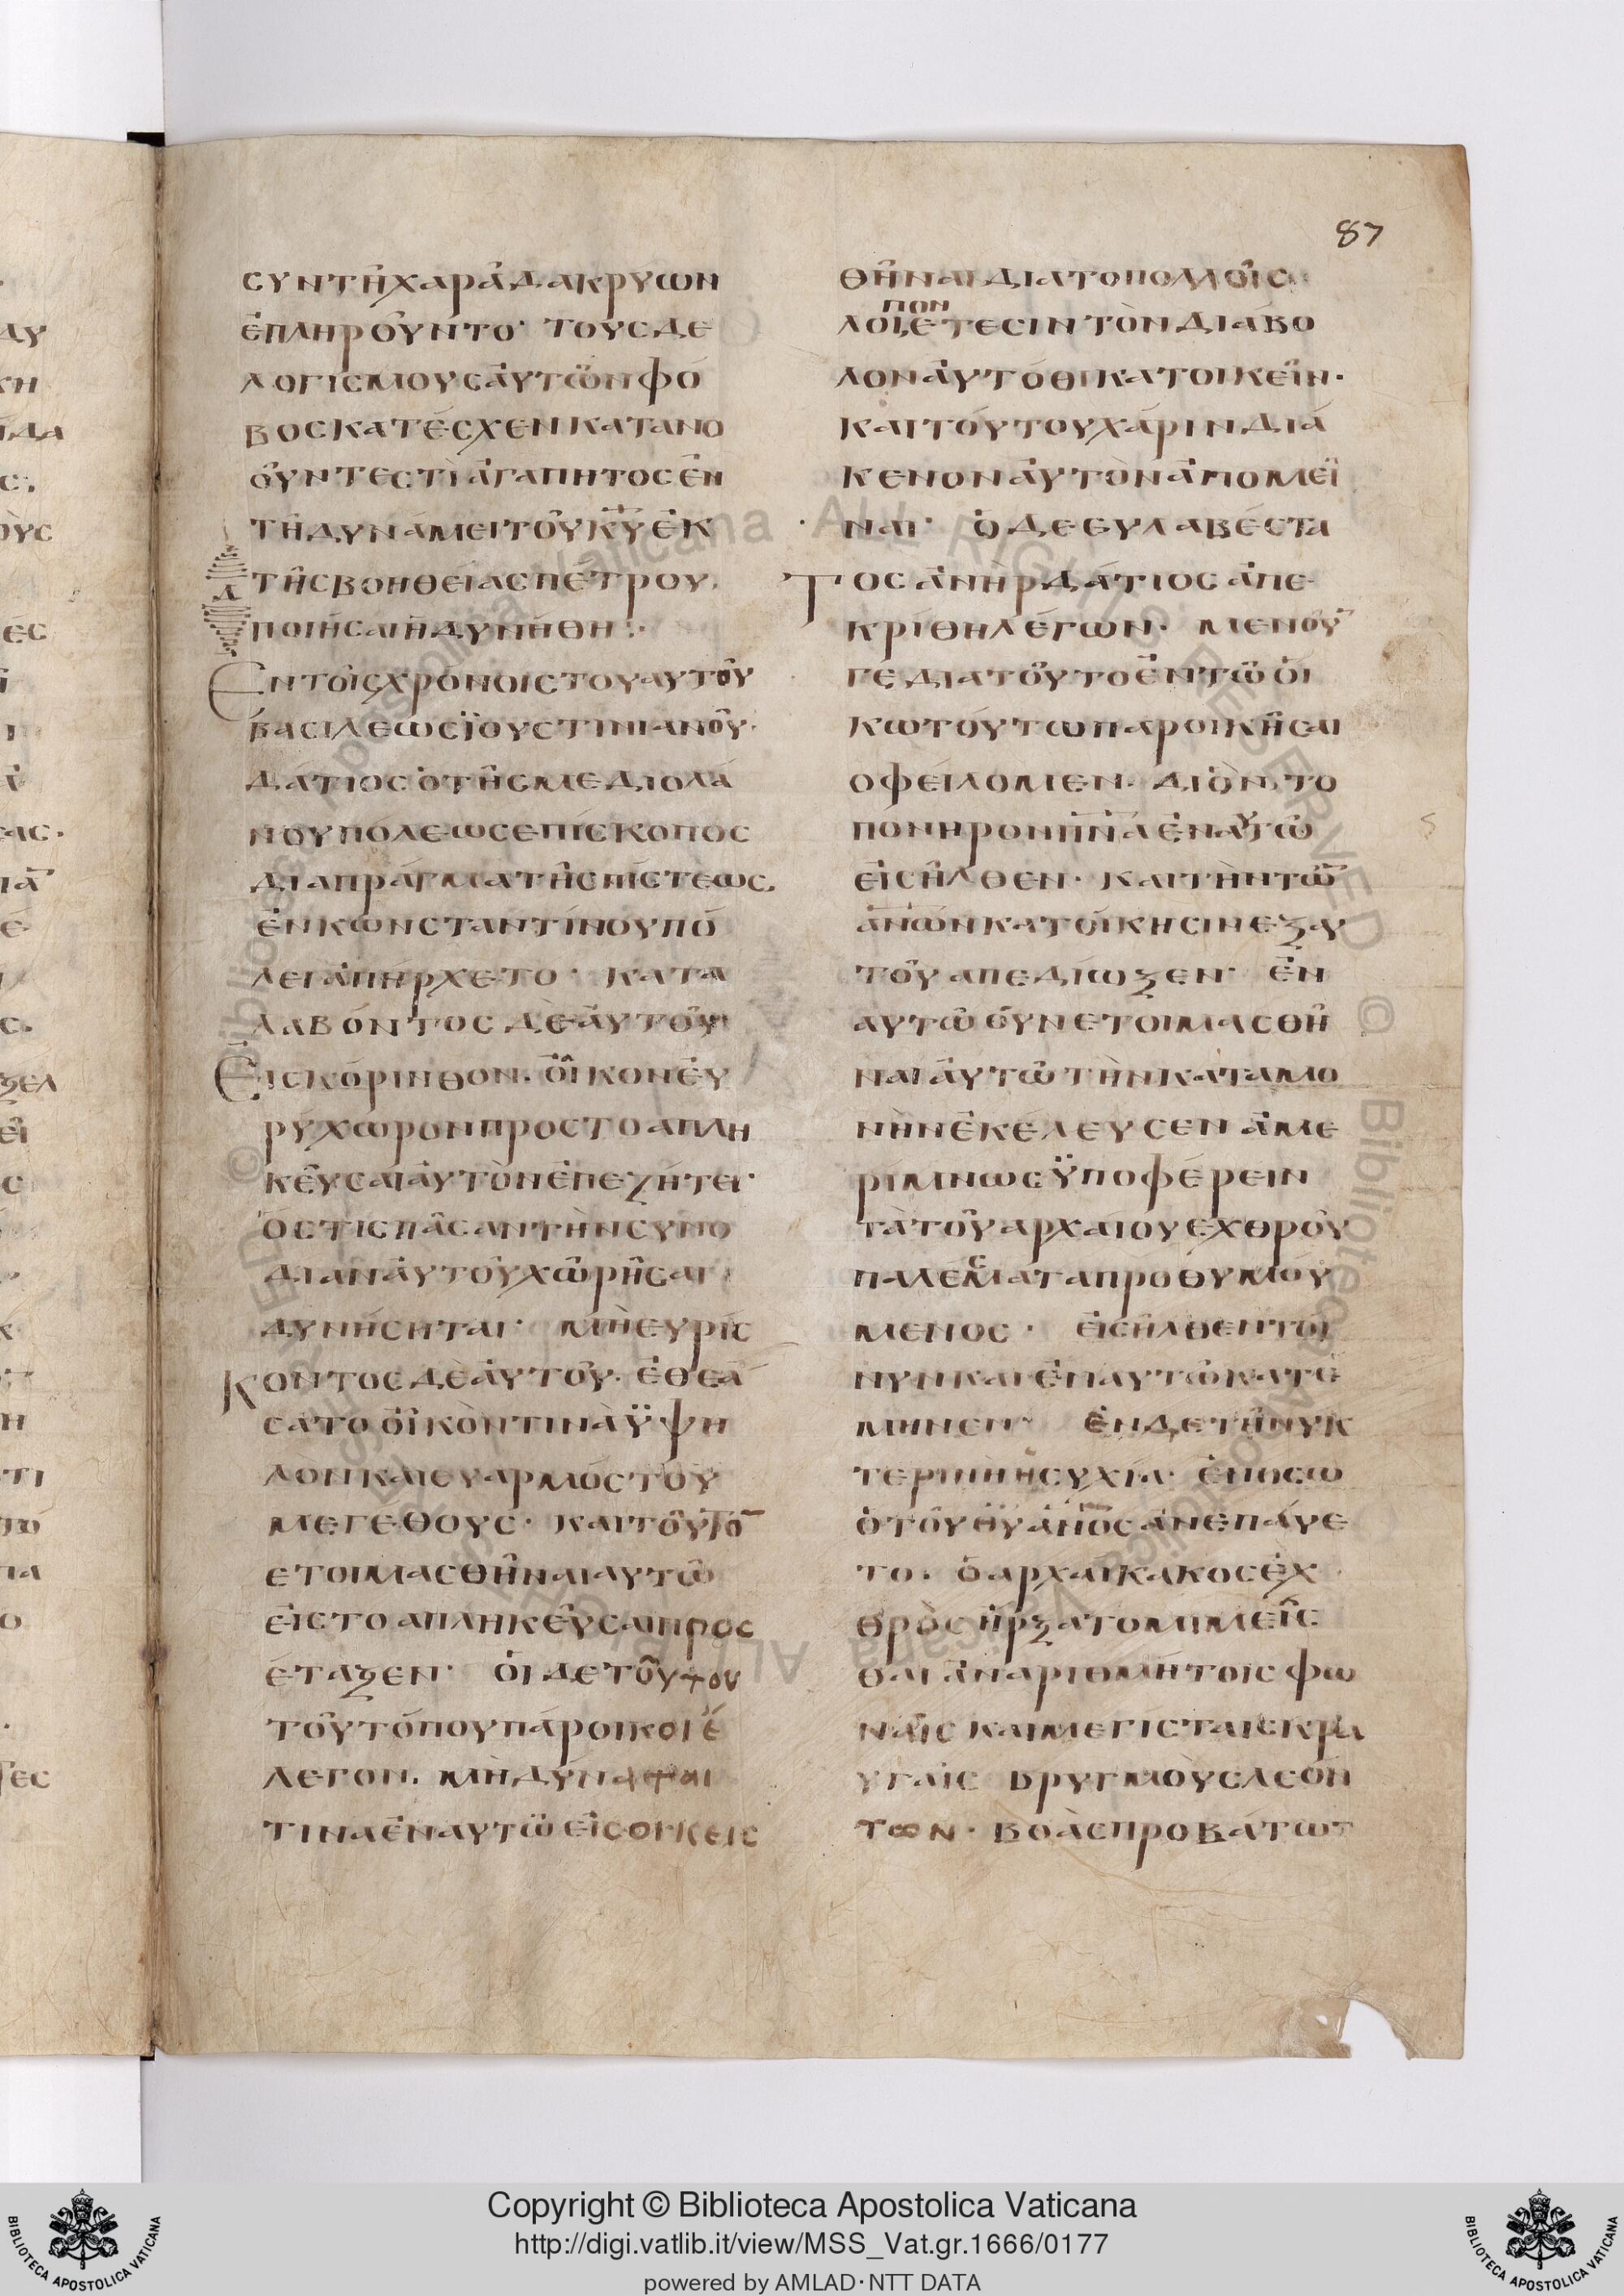 87
ϲυντῆχαρᾶδακρυων
ἐπληροῦντο· τουϲδε
λογιϲμουϲἀυτῶνφό
βοϲκατέϲχενκατανο
οῦντεϲτὶἀγαπητοϲἐν
τῆδυνάμειτοῦκῡἐκ
τῆϲβοηθείαϲπέτρου.
λ
ποιῆϲαιἠδυνήθη:·
Ἐντοῖϲχρόνοιϲτουαυτοῦ
βαϲιλεωϲϊουϲτινιανοῦ·
δάτιοϲὁτῆϲμεδιολά
νουπόλεωϲεπίϲκοποϲ
διαπράγματῆϲπίϲτεωϲ,
ἐνκωνϲταντίνουπό
λειἀπήρχετο· κατα
λαβόντοϲδὲἀυτοῦ
Ἐιϲκόρινθον. ὀῖκονἐυ
ρύχωρονπροϲτοαπλη
κεῦϲαιἀυτὸνἐπεζήτει·
ὅϲτιϲπᾶϲαντὴνϲυνο
δίανἀυτοῦχωρῆϲαι
δυνήϲηται· μὴευρίϲ
Κοντοϲδὲἀυτοῦ. ἐθεά
ϲατοὀῖκόντινὰϋψη
λονκαιευαρμόϲτου
μεγέθουϲ· καιτοῦτο̅
ετοιμαϲθῆναιαυτῶ
ἐιϲτοαπληκεῦϲαιπροϲ
έταξεν· ὁιδετοῦτου
τοῦτόπουπάροικοιἔ
λεγον. μὴδύναϲθαι
τιναἐναυτῶἐιϲοικειϲ
θῆναιδιατοπολλοῖϲ
πον
λοιἔτεϲιντὸνδιάβο
λονἀυτόθικατοικεῖν.
καιτούτουχάρινδιὰ
κενονἀυτὸνἀπομεῖ
ναι· ὁδεευλαβέϲτα
Τοϲἀνὴρδάτιοϲἀπε
κρίθηλέγων· μενοῦ
γεδιατοῦτοἐντῶὀί
κωτούτωπαροικῆϲαι
οφείλομεν. διὸντο
πονηρονπ̅ν̅αἐναυτῶ
ἐιϲῆλθεν· καιτὴντῶ̅
α̅ν̅ωνκατοίκηϲινεξαυ
τοῦαπεδίωξεν· ἐν
αυτῶοῦνετοιμαϲθῆ
ναιἀυτῶτὴνκαταμο
νὴνἐκέλευϲενἀμε
ρίμνωϲϋποφέρειν
τὰτοῦαρχαίουεχθροῦ
παλεϲματαπροθυμού
μενοϲ· ἐιϲῆλθεντοί
νυνκαιἐναυτῶκατέ
μηνεν· ἐνδετῆνυκ
τερινῆἡϲυχία· ἐνοϲω
ὁτοῦθ̅υ̅α̅ν̅οϲἀνεπάυε
το. ὁαρχαικακοϲἐχ
θρὸϲἠρξατομιμεῖϲ
θαιἀναριθμήτοιϲφω
ναῖϲκαιμεγίϲταιϲκρα
υγαῖϲ βρυγμὸυϲλεόν
των· βοὰϲπροβάτων
Copyright © Biblioteca Apostolica Vaticana
http://digi.vatlib.it/view/MSS_Vat.gr.1666/0177
powered by AMLAD·NTT DATA
BIBLIOTECA APOSTOLICA VATICANA
BIBLIOTECA APOSTOLICA VATICANA